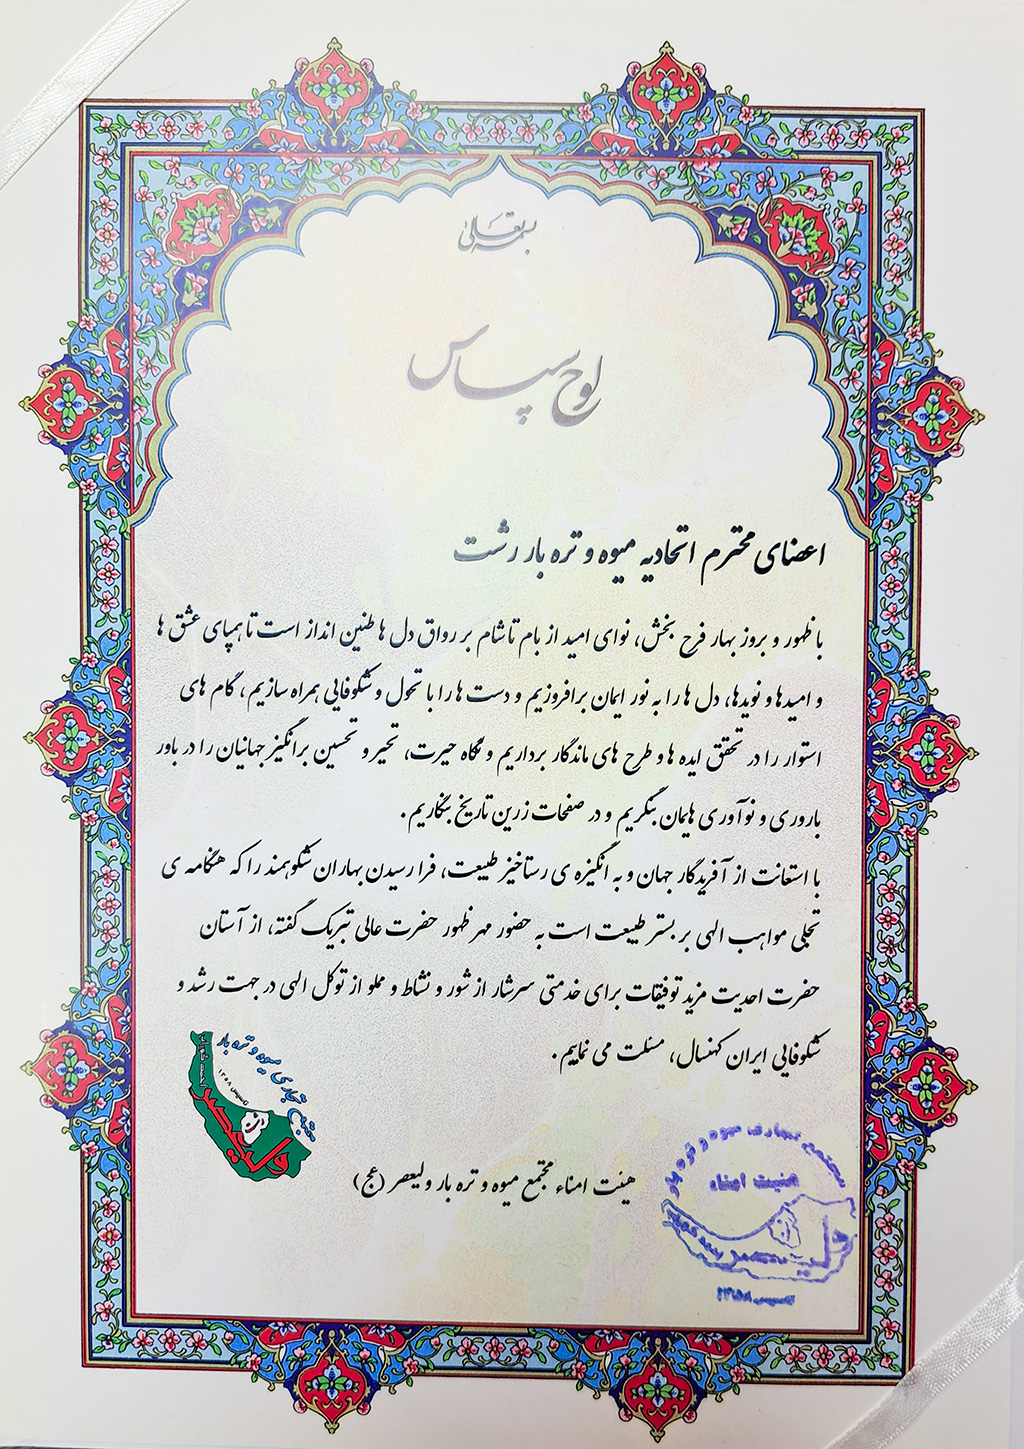 بسمه تعالی
لوح سپاس
اعضای محترم اتحادیه میوه و تره بار رشت
با ظهور و بروز بهار فرح بخش، نوای امید از بام تا شام بر رواق دل ها طنین انداز است تا همپای عشق ها
و امیدها و نویدها، دل ها را به نور ایمان برافروزیم و دست ها را با تحول و شکوفایی همراه سازیم، گام های
استوار را در تحقق ایده ها و طرح های ماندگار برداریم و نگاه حیرت، تحیر و تحسین برانگیز جهانیان را در باور
باروری و نوآوری هایمان بنگریم و در صفحات زرین تاریخ بنگاریم.
با استعانت از آفریدگار جهان و به انگیزه ی رستاخیز طبیعت، فرا رسیدن بهاران شکوهمند را که هنگامه ی
تجلی مواهب الهی بر بستر طبیعت است به حضور مهر ظهور حضرت عالی تبریک گفته، از آستان
حضرت احدیت مزید توفیقات برای خدمتی سرشار از شور و نشاط و مملو از توکل الهی در جهت رشد و
شکوفایی ایران کهنسال، مسئلت می نماییم.
مجتمع تجاری میوه و تره بار
تاسیس ۱۳۵۸
ولیعصر
هیئت امناء مجتمع میوه و تره بار ولیعصر (عج)
مجتمع تجاری میوه و تره بار
هیئت امناء
ولیعصر
تاسیس ۱۳۵۸